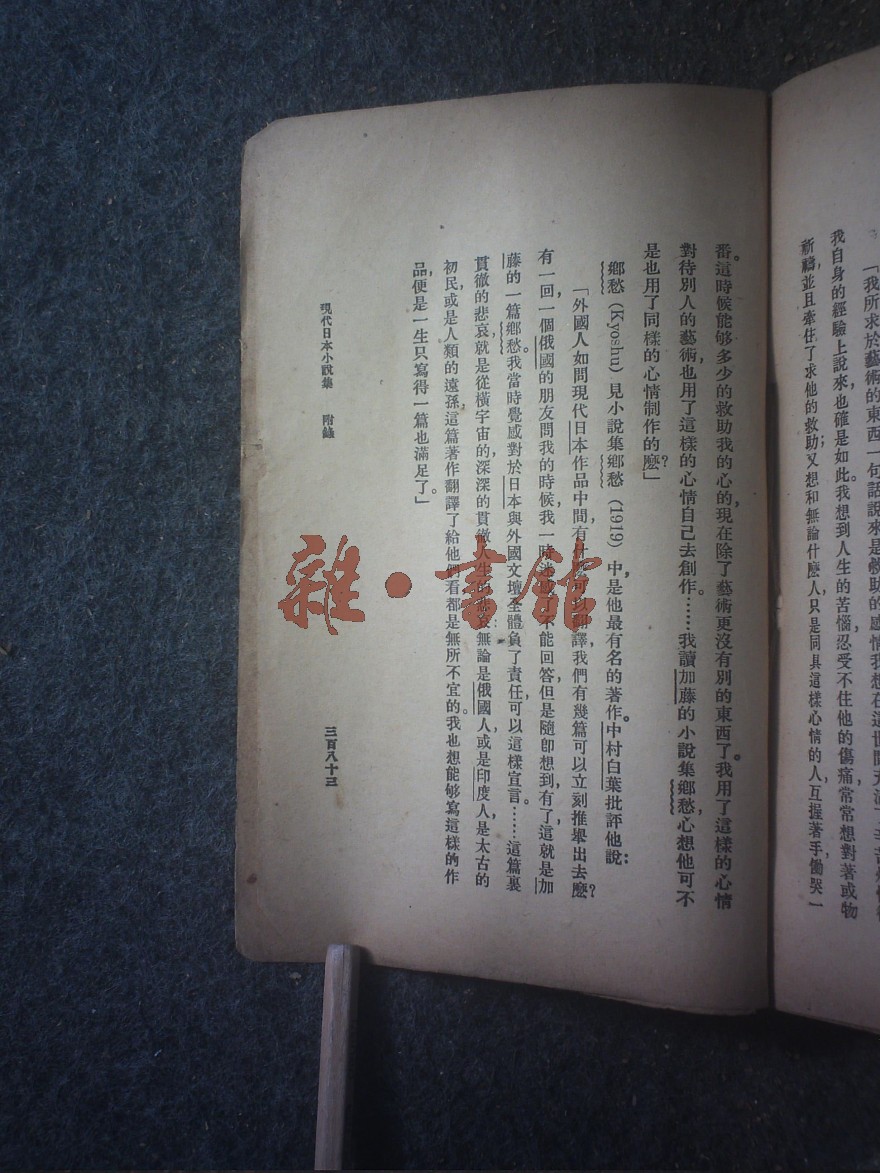 「我所求於藝術的東西一句話說來是救助的感情我想在這世間
我自身的經驗上說來，也確是如此。我想到人生的苦惱忍受不住他的傷痛常常想對著或物
祈禱，並且牽住了求他的救助；又想和無論什麼人只是同具這樣心情的人，互握著手慟哭一
番。這時候能够多少的救助我的心的，現在除了藝術更沒有別的東西了。我用了這樣的心情
對待別人的藝術，也用了這樣的心情自己去創作。……我讀加藤的小說集鄉愁，心想他可不
是也用了同樣的心情制作的麼？」
鄉愁（Kyoshu）見小說集鄉愁（1919）中，是他最有名的著作。中村白葉批評他說：
「外國人如問現代日本作品中間，有什麼可以翻譯，我們有幾篇可以立刻推舉出去麼？
有一回一個俄國的朋友問我的時候，我一時不能回答但是隨即想到，有了，這就是加
藤的一篇鄉愁。我當時覺感對於日本與外國文壇全體負了責任，可以這樣宣言。……這篇裏
貫徹的悲哀，就是從橫宇宙的深深的貫徹人生的悲哀，無論是俄國人，或是印度人，是太古的
初民，或是人類的遠孫，這篇著作翻譯了給他們看都是無所不宜的。我也想能够寫這樣的作
品，便是一生只寫得一篇也滿足了。」
現代日本小說集　附錄
三百八十三
雜·書館